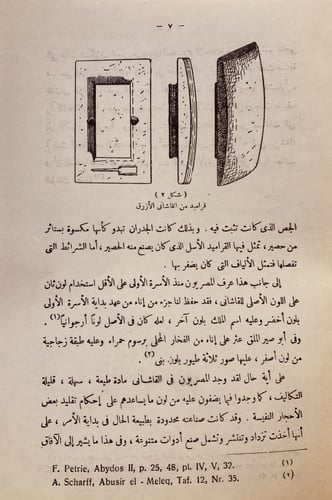 — ٧ —
( شكل ٢ )
قراميد من القاشانى الأزرق
الجص الذى كانت تثبت فيه . وبذلك كانت الجدران تبدو كأنها مكسوة بستائر
من حصير ، تمثل فيها القراميد الأسل الذى كان يصنع منه الحصير ، أما الشرائط التى
تفصلها فتمثل الألياف التى كان يضفر بها .
إلى جانب هذا عرف المصريون منذ الأسرة الأولى على الأقل استخدام لون ثان
على اللون الأصلى للقاشانى ، فقد حفظ لنا جزء من إناء من عهد بداية الأسرة الأولى
بلون أخضر وعليه اسم الملك بلون آخر ، لعله كان فى الأصل لونا أرجوانيا (١) .
وفى أبو صير الملق عثر على إناء من الفخار المحلى برسوم حمراء وعليه طبقة زجاجية
من لون أصفر ، وعليها صور ثلاثة طيور بلون بنى (٢) .
على أية حال لقد وجد المصريون فى القاشانى مادة طيعة ، سهلة ، قليلة
التكاليف ، كما وجدوا فيما يضفون عليه من لون ما يساعدهم على إحكام تقليد بعض
الأحجار النفيسة . وقد كانت صناعته محدودة بطبيعة الحال فى بداية الأمر ، على
أنها أخذت تزداد وتنتشر وتشمل صنع أدوات متنوعة ، وفى هذا ما يشير إلى الآفاق
F. Petrie, Abydos II, p. 25, 48, pl. IV, V, 32. (١)
A. Scharff, Abusir el - Meleq, Taf. 12, Nr. 35. (٢)